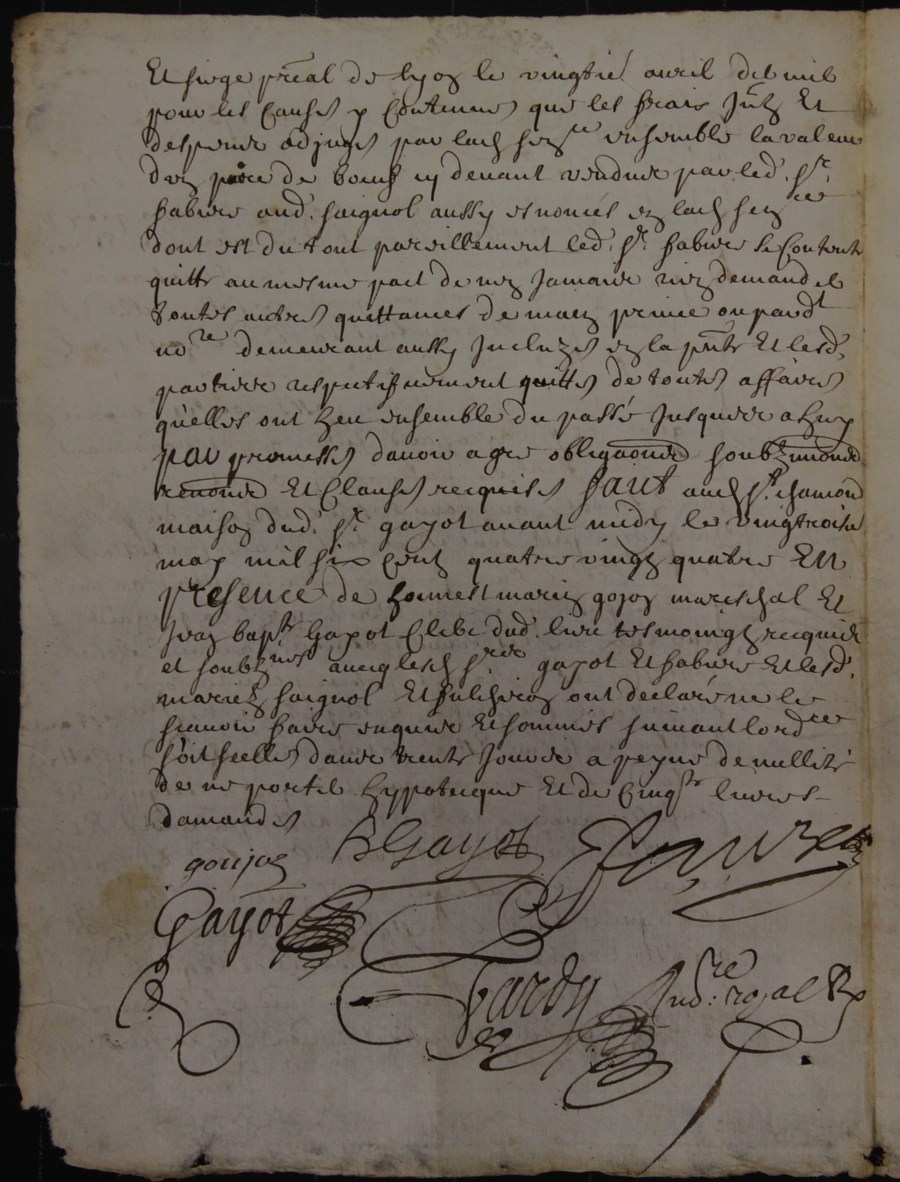 Et siege pñal de lyon le vingtie avril de mil
pour les causes y contenues que les frais Et
despens adjugés par lad sen ce ensemble la valeur
d'un de boeuf cy devant vendue par led. sr.
fabvre aud. saignol aussy en lad sen ce
dont est du tout pareillement led. sr. fabvre se contente
quitte au mesme pact de n'en jamais rien demander
toutes autres quittances de main privee ou pard.t
no re demeurant aussy incluzes en la pñte Et lesd.
parties respectifvement quittes de toutes affaires
qu'elles ont heu ensemble du passé jusques a huy
par promesses d'avoir a gré obligaons soubzmiõns
renõns Et clauses requises fait aud St. chamond
maison dud. sr. gayot avant midy le vingtroisie
may mil six cent quatre vingt quatre En
presence de honnest marin gojon mareschal Et
Jean bapte Gayot clerc dud. lieu tesmoings requis
et soubznes avec lesd srs gayot Et fabvre Et lesd.
saignol Et ont declaré ne le
scavoir faire enquis Et sommés suivant lord ce
soit seellé dans trente jours a peyne de nullité
de ne porter hyppotecque Et de cinq te livres
damandes
goujon BGayot Fauvre
Gayot
Tardy no: re royal R